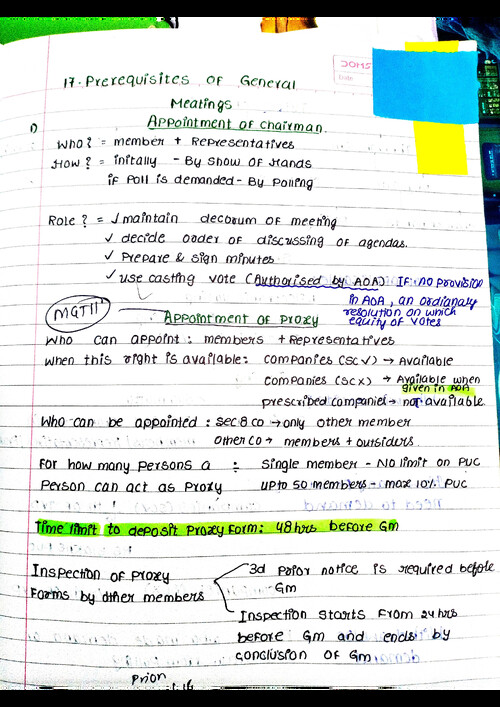 17. Prerequisites of General
Meatings
1) Appointment of chairman
Who? = member + Representatives
How? = initally - By Show of Hands
if Poll is demanded - By Polling
Role? = √ maintain decorum of meeting
✓ decide order of discussing of agendas.
✓ Prepare & sign minutes
✓ use casting vote (Authorised by AOA) IF: no provision
in AOA, an ordianary
resolution on which
equity of votes
MGT11 Appointment of Proxy
Who can appoint: members + Representatives
When this right is available: companies (SC✓) → Available
companies (SCX) → Available when
given in AOA
prescribed companies → not available
Who can be appointed : Sec 8 co → only other member
Other co → members + outsiders.
For how many persons a : Single member - No limit on PUC
Person can act as Proxy upto 50 members - max 10% PUC
Time limit to deposit Proxy form: 48 hrs before Gm
Inspection of Proxy 3d prior notice is required before
Forms by other members Gm
Inspection starts from 24 hrs
before Gm and ends by
conclusion of Gm
Prion